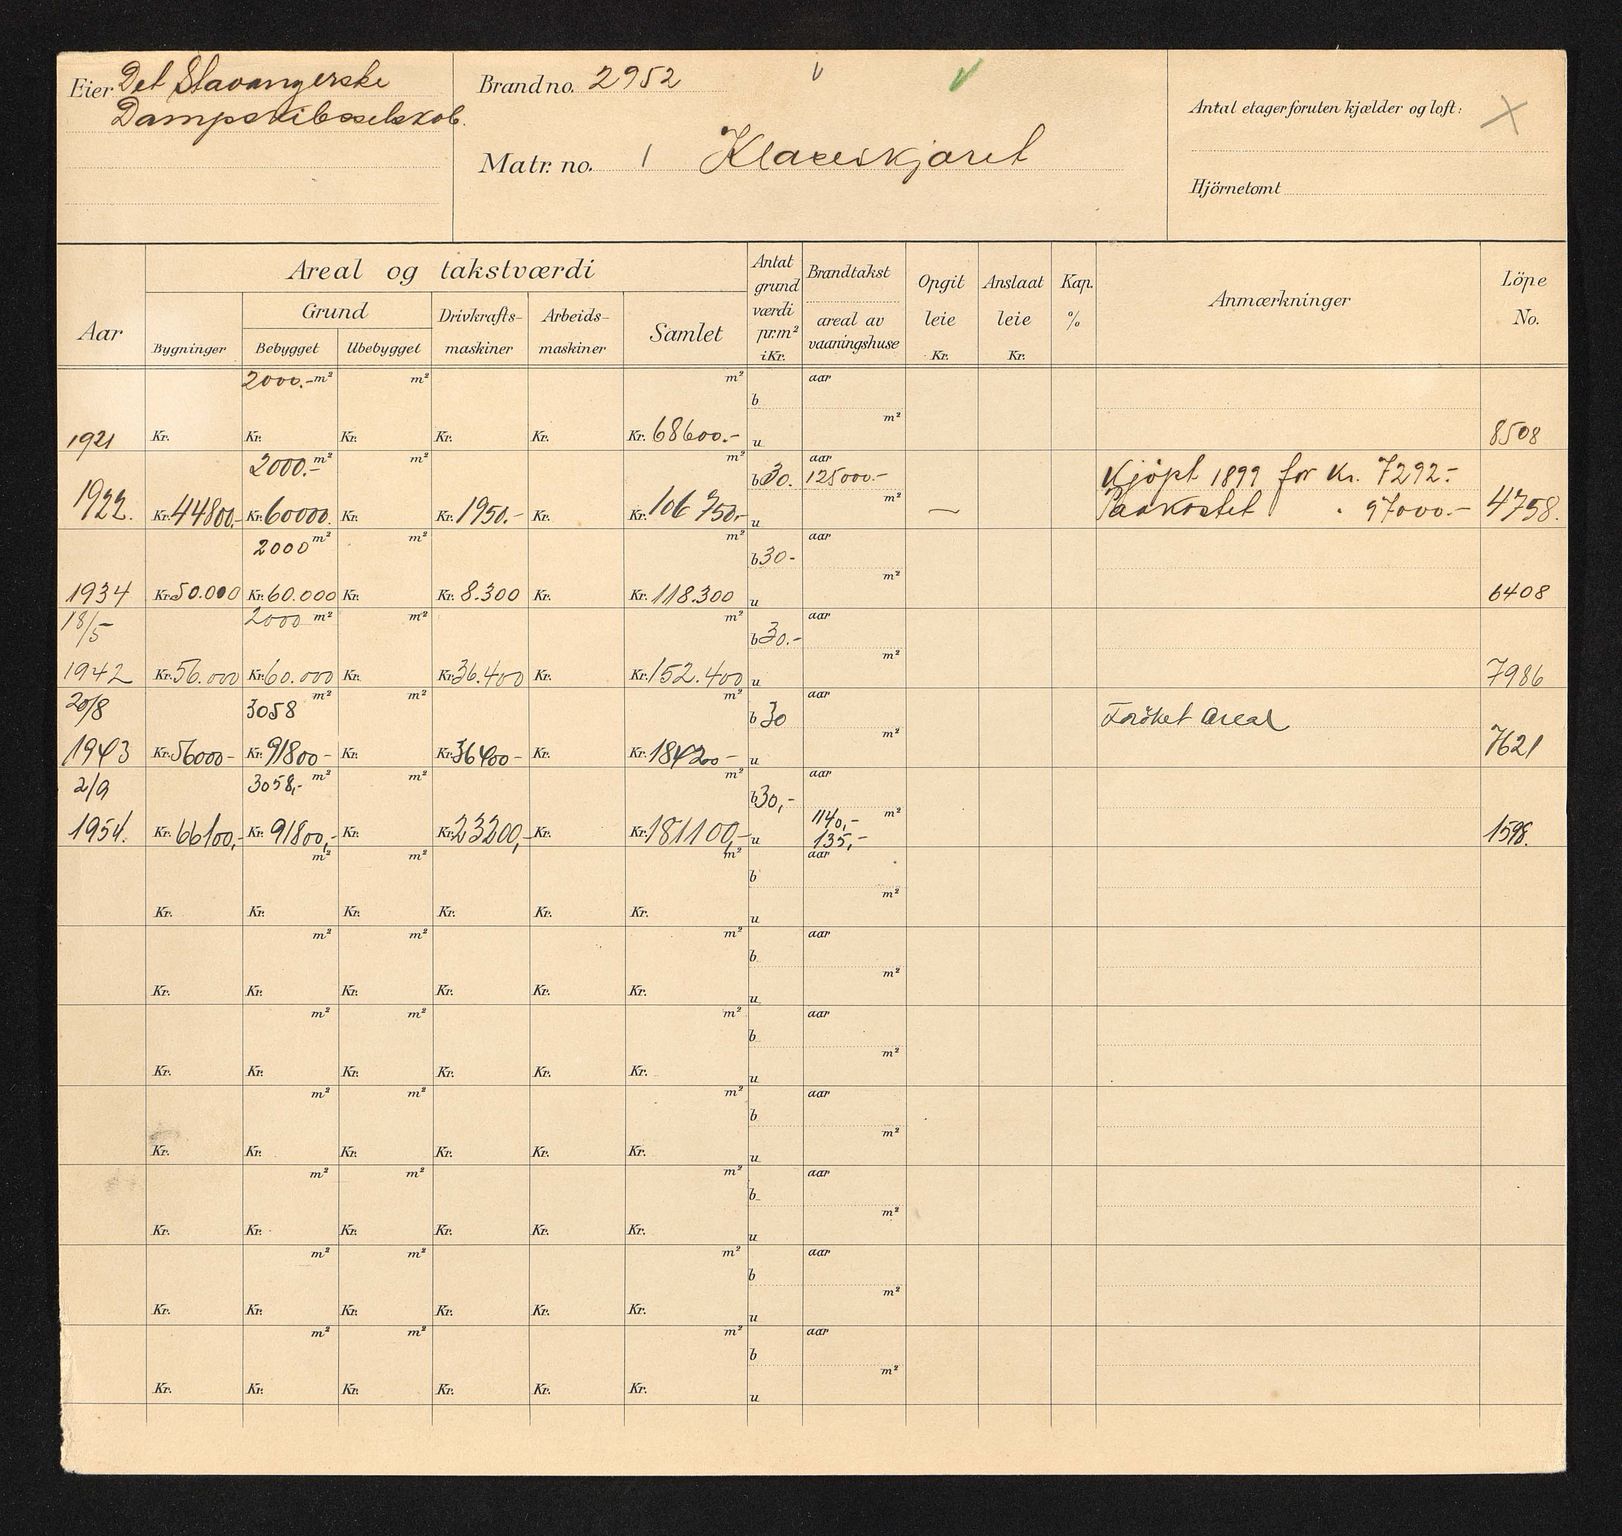 Eier Det Stavangerske
Dampskibsselskab.
Brand no. 2952
Matr. no. 1 Klaseskjæret
Antal etager foruten kjælder og loft: X
Hjörnetomt
Aar
Areal og takstværdi
Bygninger
Grund
Bebygget Ubebygget
Drivkrafts-
maskiner
Arbeids-
maskiner
Samlet
Antat
grund
værdi
pr. m²
i Kr.
Brandtakst
areal av
vaaningshuse
Opgit
leie
Kr.
Anslaat
leie
Kr.
Kap.
%
Anmærkninger
Löpe
No.
2000.- m² m² m² aar
b
m²
1921 Kr. Kr. Kr. Kr. Kr. Kr. 68600.- u 8508
2000.- m² m² m² aar
b 30. 125000.- Kjöpt 1899 for Kr. 7292.-
m²
1922. Kr. 44800.- Kr. 60000. Kr. Kr. 1950.- Kr. Kr. 106 750.- u — Paakostet " 97000.- 4758.
2000 m² m² m² aar
b 30-
m²
1934 Kr. 50.000 Kr. 60.000 Kr. Kr. 8.300 Kr. Kr. 118.300 u 6408
18/5 2000 m² m² m² aar
b 30.-
m²
1942 Kr. 56.000 Kr. 60.000 Kr. Kr. 36.400 Kr. Kr. 152.400 u 7986
20/8 3058 m² m² m² aar
b 30 Foröket areal
m²
1943 Kr. 56000- Kr. 91800- Kr. Kr. 36400- Kr. Kr. 184200- u 7621
2/9 3058,- m² m² m² aar
b 30,-
1140,- m²
1954. Kr. 66100,- Kr. 91800,- Kr. Kr. 23200,- Kr. Kr. 181100,- u 135,- 1598.
m² m² m² aar
b
m²
Kr. Kr. Kr. Kr. Kr. Kr. u
m² m² m² aar
b
m²
Kr. Kr. Kr. Kr. Kr. Kr. u
m² m² m² aar
b
m²
Kr. Kr. Kr. Kr. Kr. Kr. u
m² m² m² aar
b
m²
Kr. Kr. Kr. Kr. Kr. Kr. u
m² m² m² aar
b
m²
Kr. Kr. Kr. Kr. Kr. Kr. u
m² m² m² aar
b
m²
Kr. Kr. Kr. Kr. Kr. Kr. u
m² m² m² aar
b
m²
Kr. Kr. Kr. Kr. Kr. Kr. u